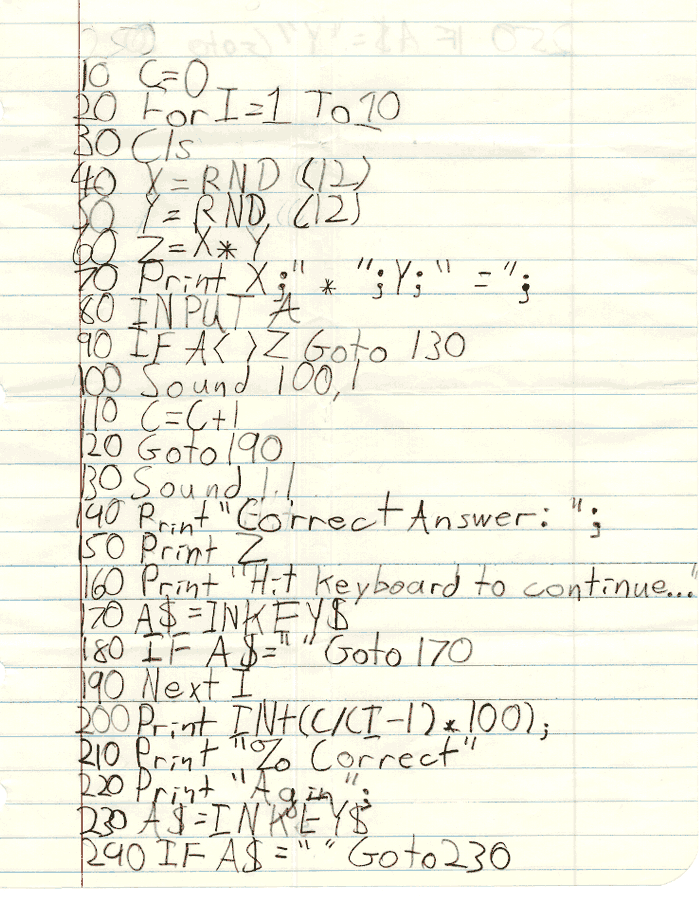 10 C=0
20 For I=1 To 10
30 Cls
40 X=RND (12)
50 Y=RND (12)
60 Z=X*Y
70 Print X;" * ";Y;" =";
80 INPUT A
90 IF A< >Z Goto 130
100 Sound 100,1
110 C=C+1
120 Goto 190
130 Sound 1,1
140 Print "Correct Answer: ";
150 Print Z
160 Print "Hit keyboard to continue..."
170 A$=INKEY$
180 IF A$=" " Goto 170
190 Next I
200 Print INt(C/(I-1)*100);
210 Print "% Correct"
220 Print "Agin";
230 A$=INKEY$
290 IF A$=" " Goto 230